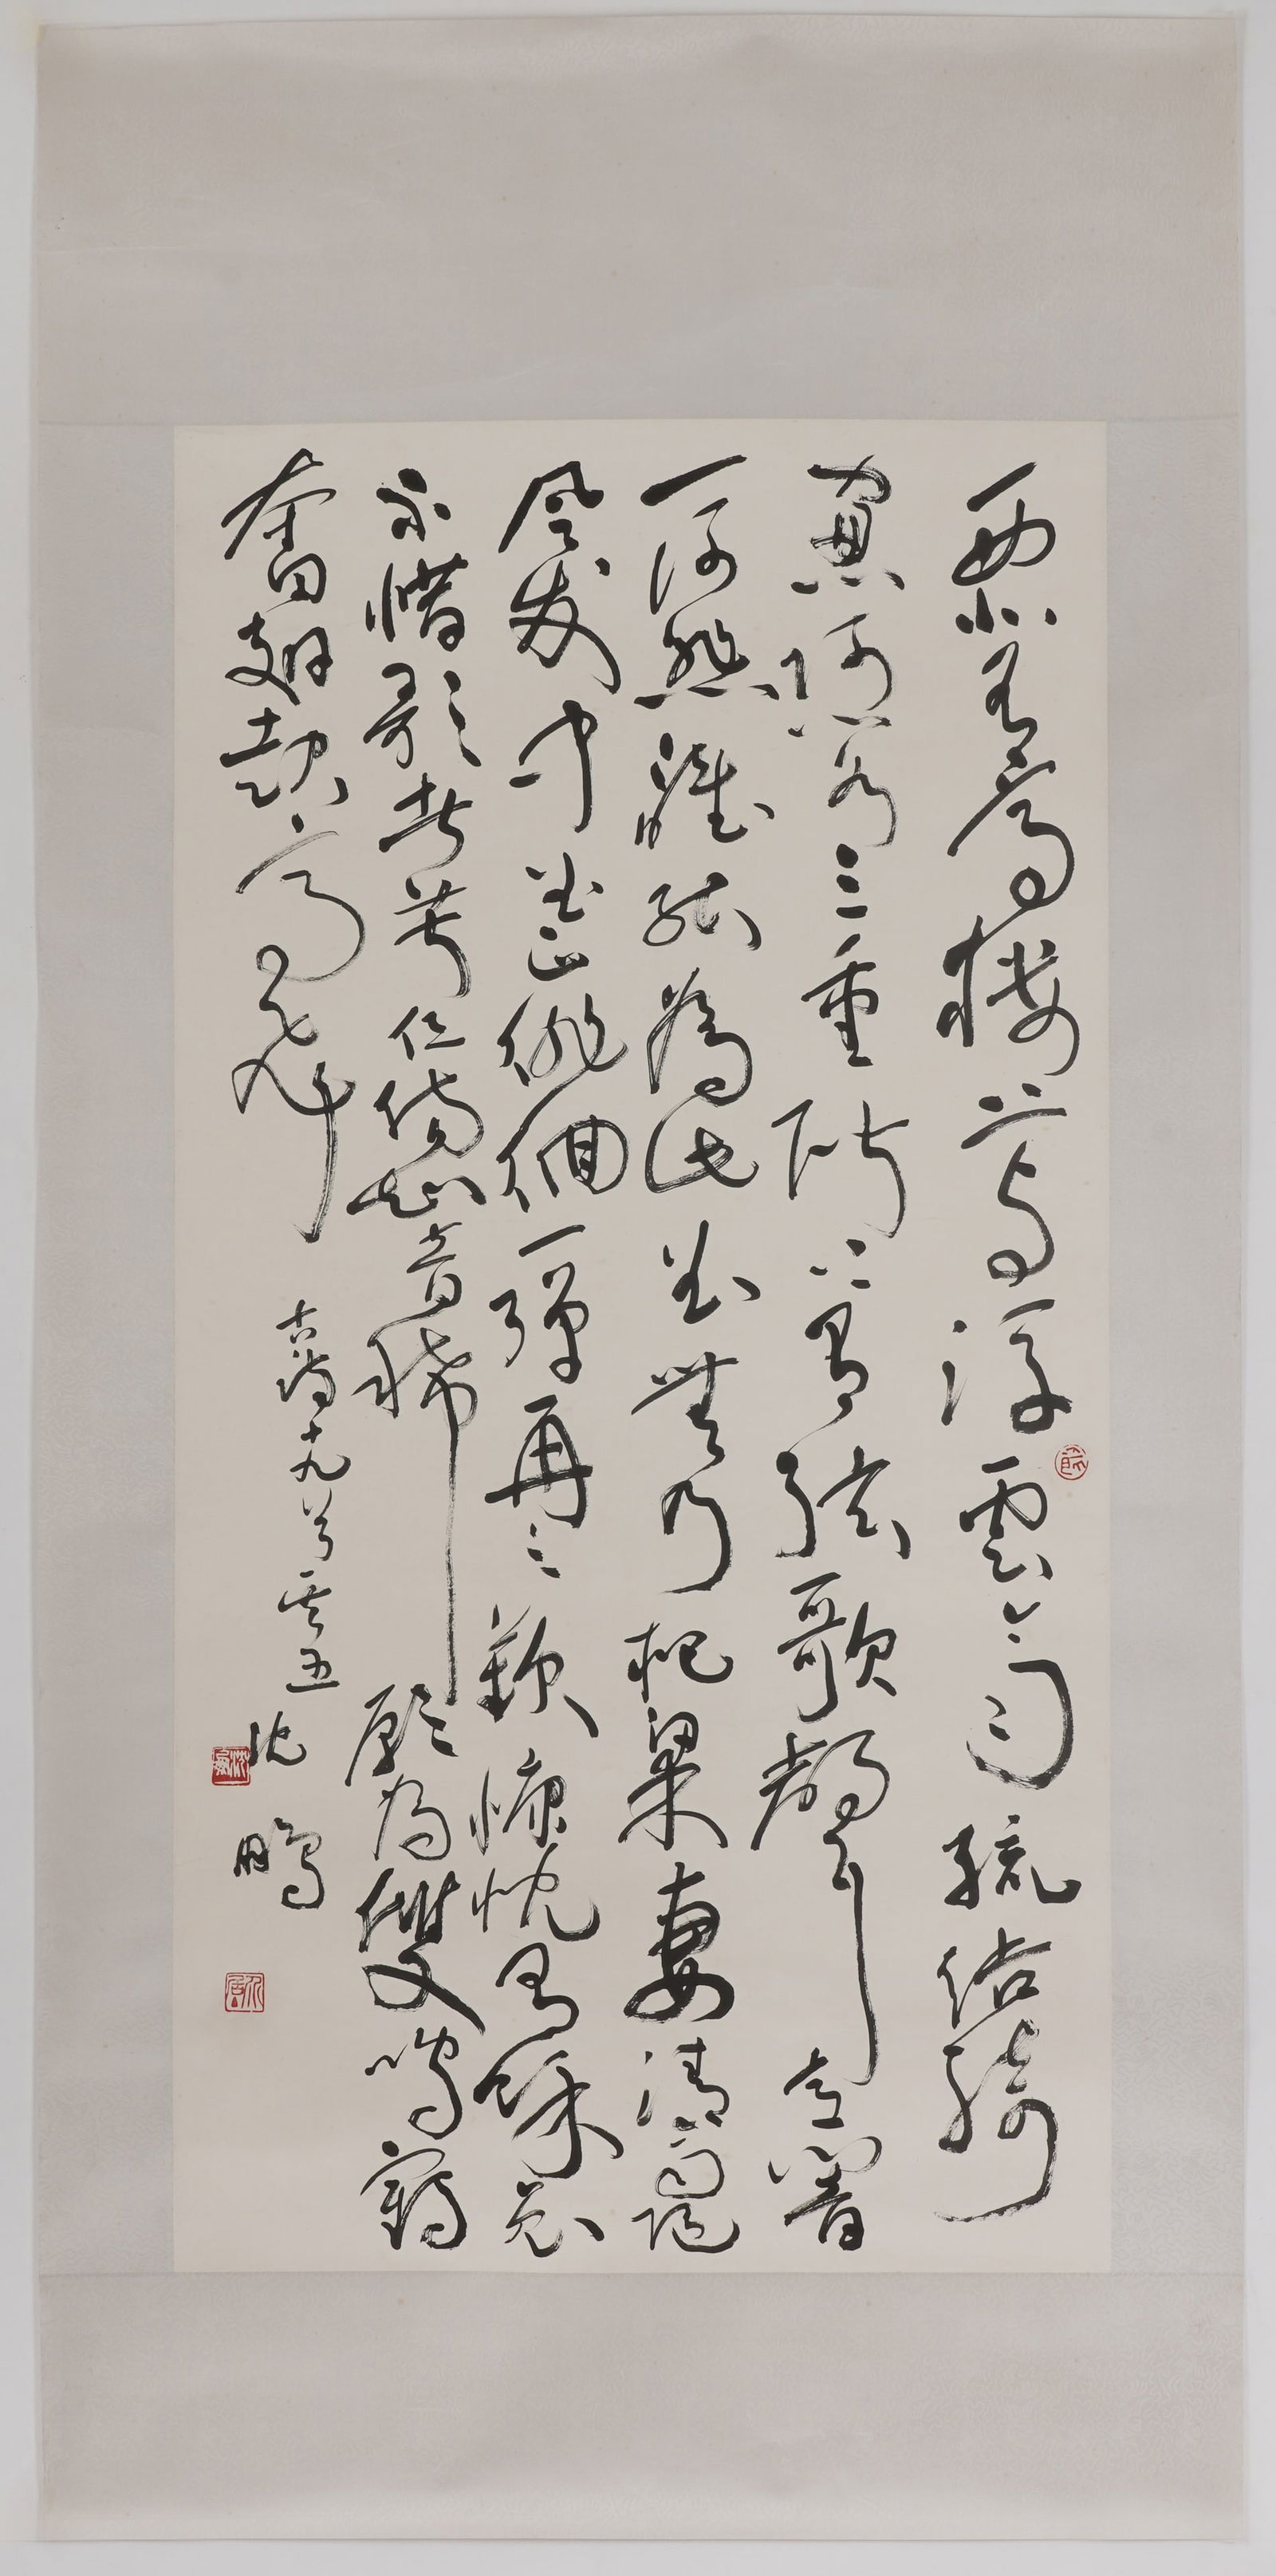 西北有高樓上與浮雲齊疏結綺
窗阿閣三重階上有弦歌聲音響
一何悲誰能為此曲無乃杞梁妻清商隨
風發中曲正徘徊一彈再三歎慷慨有餘哀
不惜歌者苦但傷知音稀願為雙鳴鶴
奮翅起高飛
古詩十九首其五 沈鵬
沈鵬